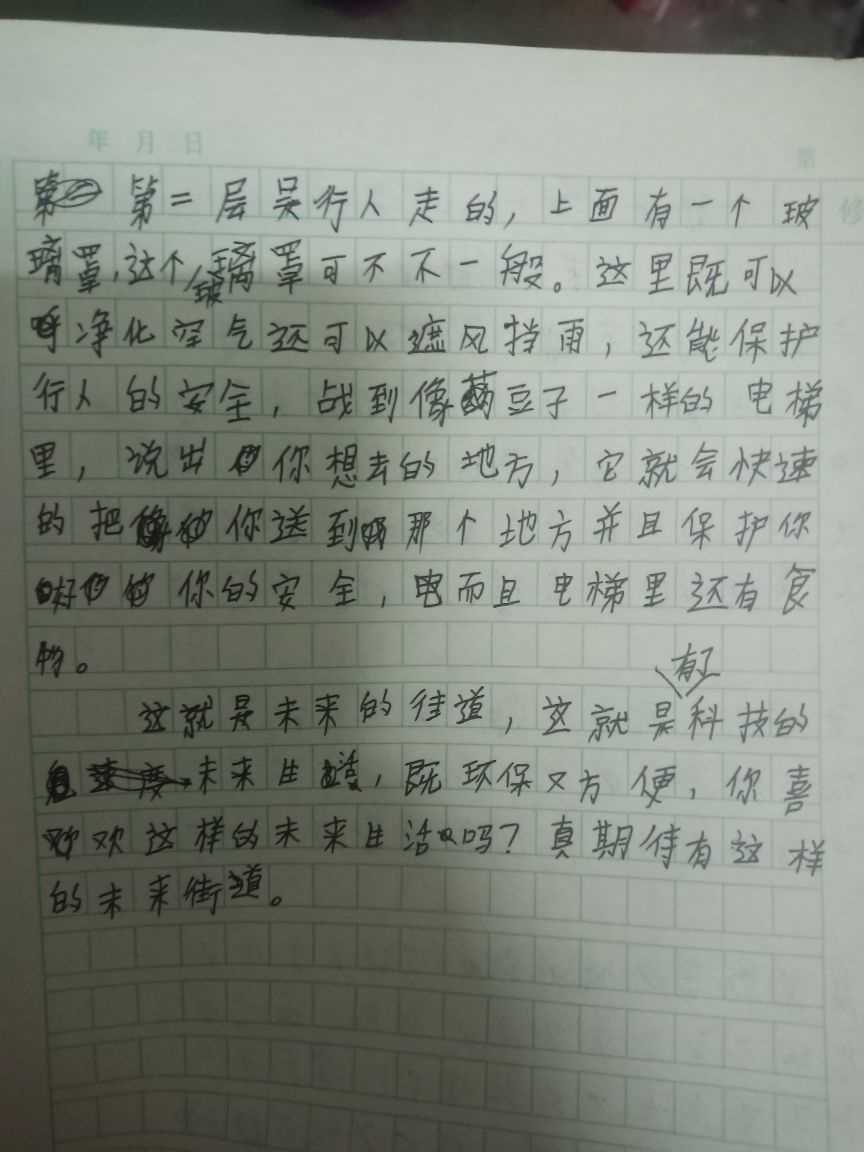 年 月 日
第
修
第二层是行人走的，上面有一个玻
璃罩，这个玻璃罩可不不一般。这里既可以
净化空气还可以遮风挡雨，还能保护
行人的安全，战到像豆子一样的电梯
里，说出你想去的地方，它就会快速
的把你送到那个地方并且保护你
你的安全，而且电梯里还有食
物。
有了
这就是未来的街道，这就是科技的
未来生活，既环保又方便，你喜
欢这样的未来生活吗？真期待有这样
的未来街道。